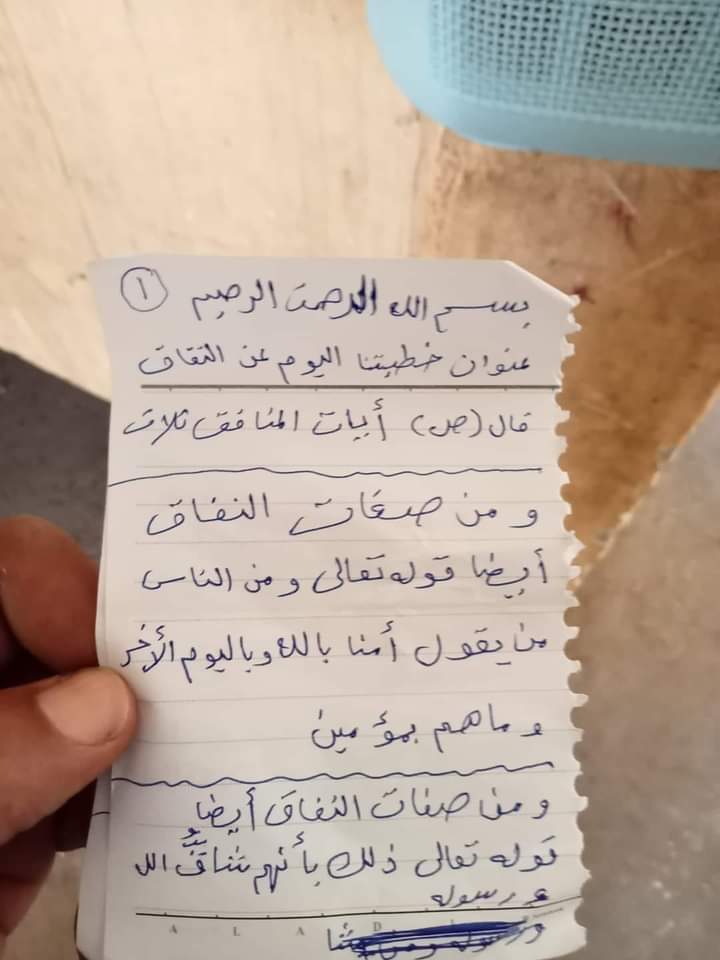 ١ بسم الله الرحمن الرحيم
عنوان خطبتنا اليوم عن النفاق
قال (ص) أيات المنافق ثلاث
ومن صفات النفاق
أيضا قوله تعالى ومن الناس
من يقول أمنا بالله وباليوم الأخر
وما هم بمؤمين
ومن صفات النفاق أيضا
قوله تعالى ذلك بأنهم الله
ورسوله
A L A D